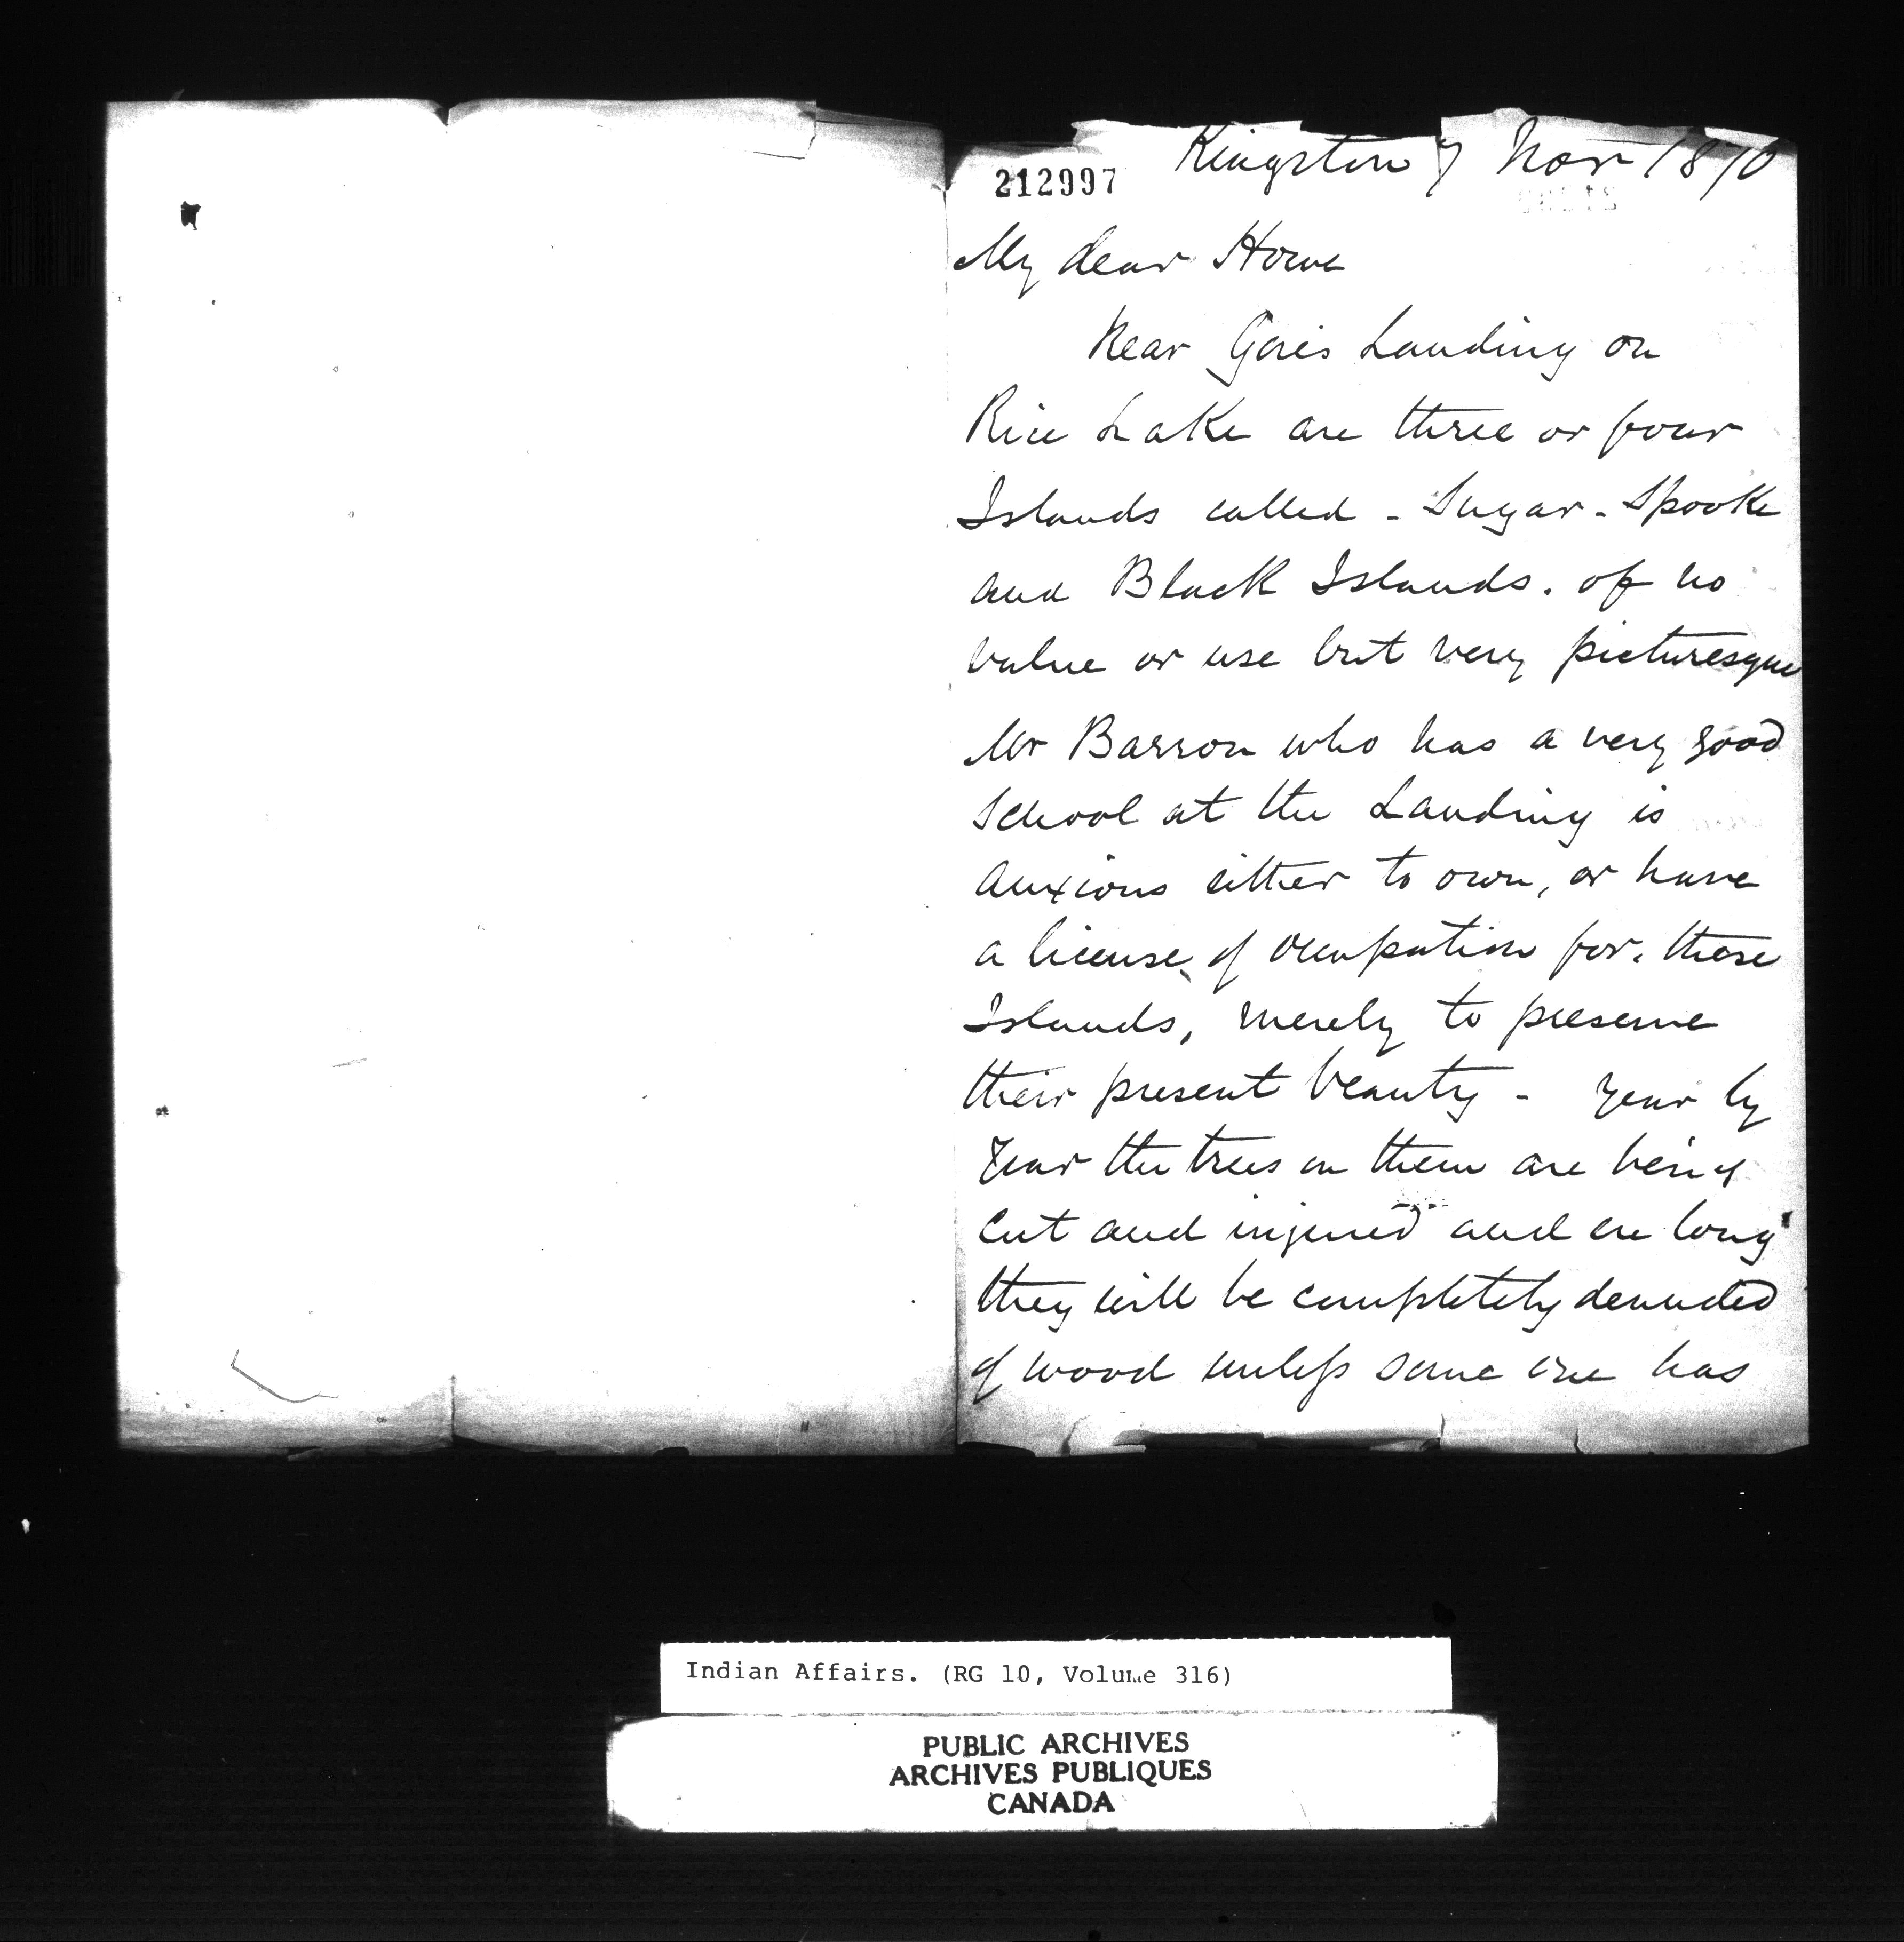 212997
Kingston 7 Nov 1870
My dear Howe
Near Gore's Landing on
Rice Lake are three or four
Islands called - Sugar - Spooke
and Black Islands. of no
value or use but very picturesque
Mr Barron who has a very good
School at the Landing is
anxious either to own, or have
a license of occupation for, these
Islands, merely to preserve
their present beauty - Year by
Year the trees on them are being
cut and injured and ere long
they will be completely denuded
of wood unless some one has
Indian Affairs. (RG 10, Volume 316)
PUBLIC ARCHIVES
ARCHIVES PUBLIQUES
CANADA